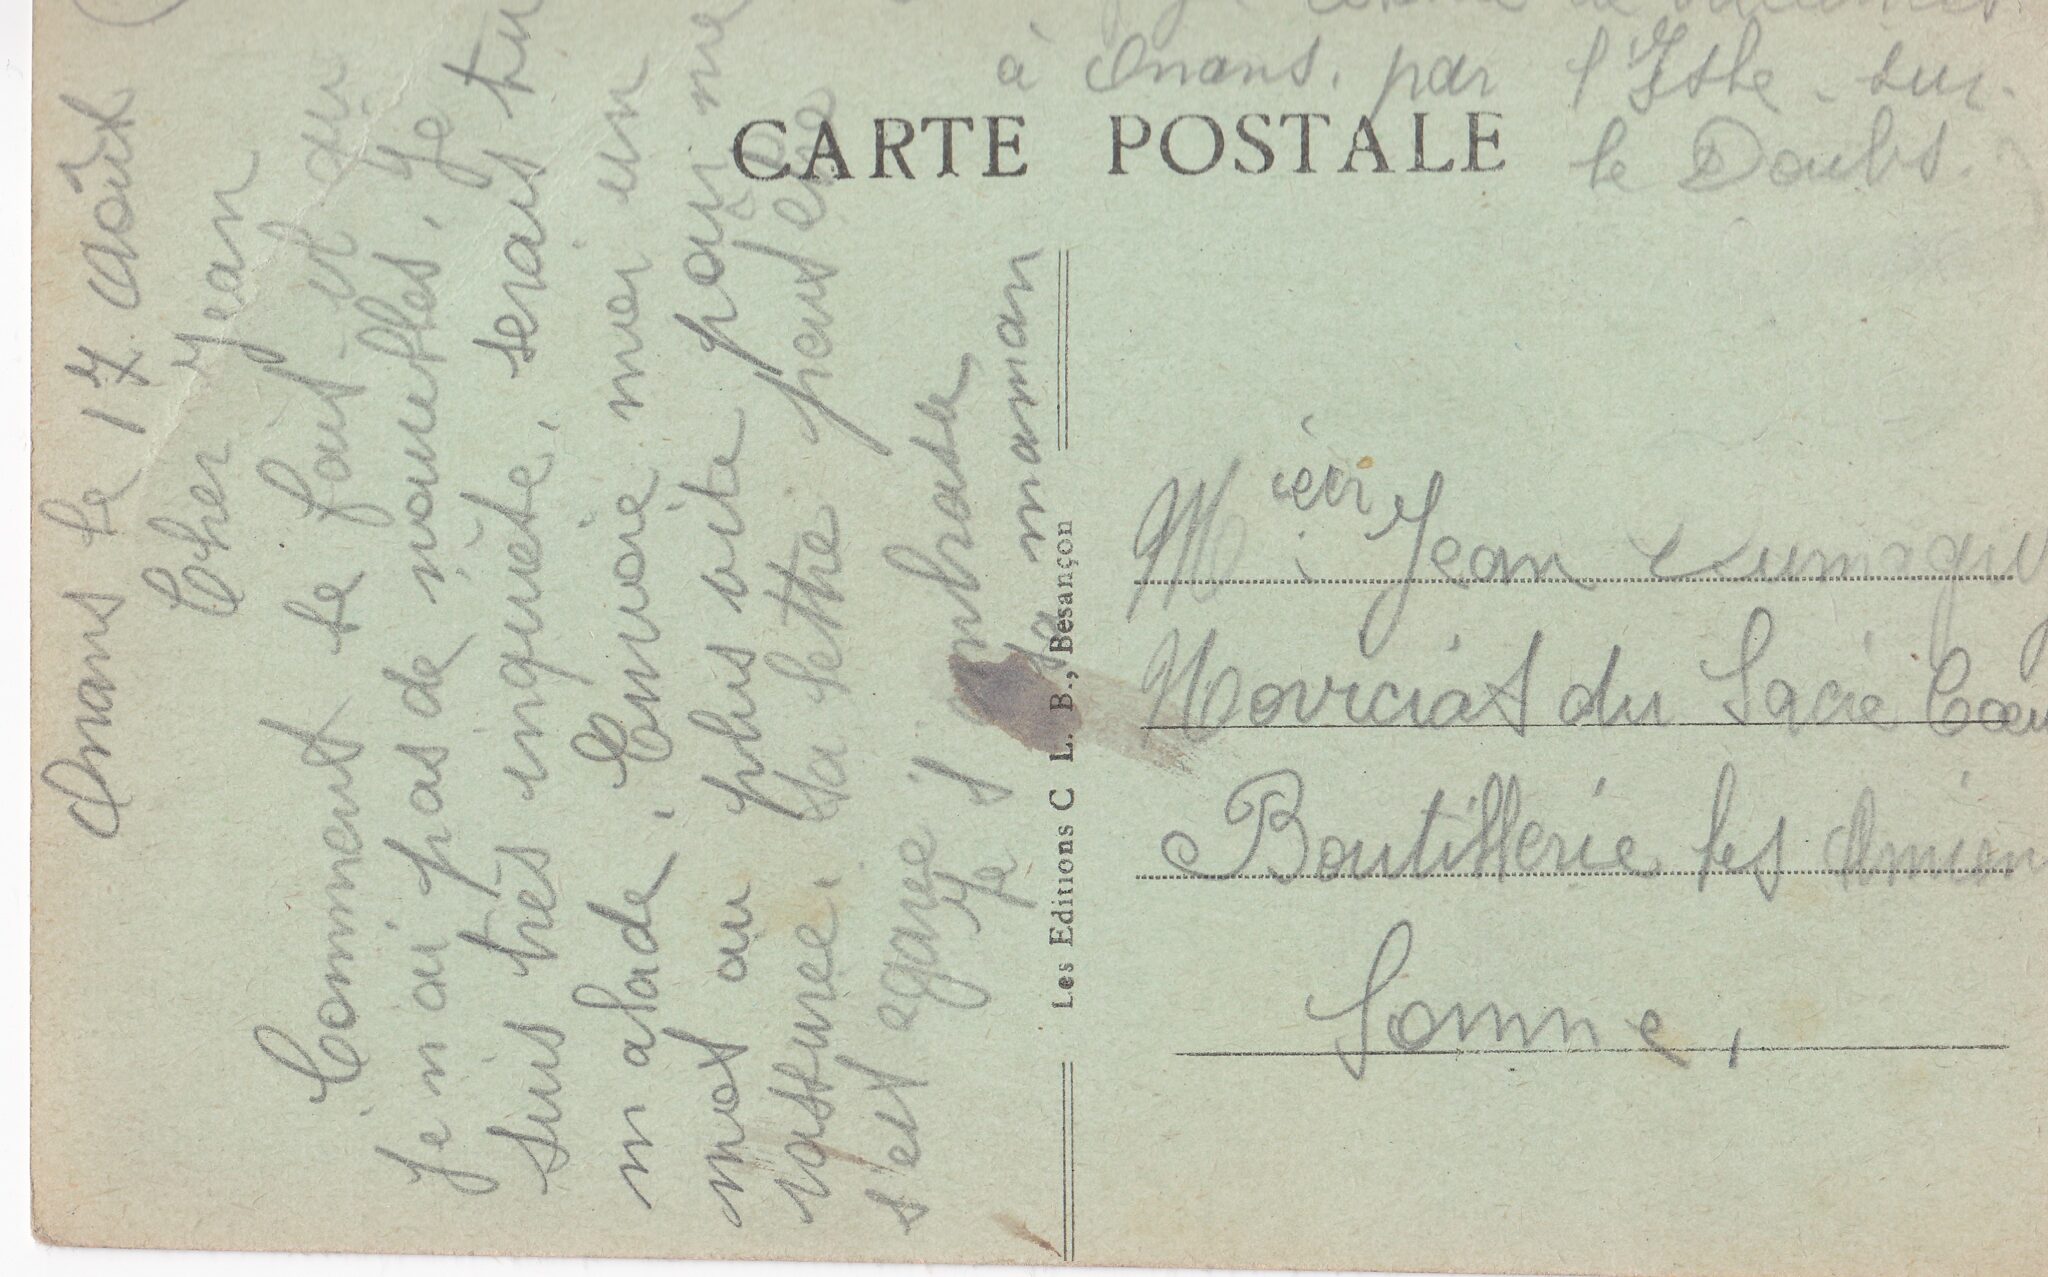 à Onans, par l'Isle-sur-
le Doubs.
CARTE POSTALE
Onans le 17 août
Cher Jean
Comment te fait-il qu
je n'ai pas de nouvelles, Je
suis très inquiète, serais tu
malade, Envoie moi un
mot au plus vite pour me
rassurer, ta lettre peut être
s'est égarée
Je t'embrasse
ta maman
Les Editions C L. B., Besançon
Jean
Noviciat du Sacré Coeu
Boutillerie les Amien
Somme,